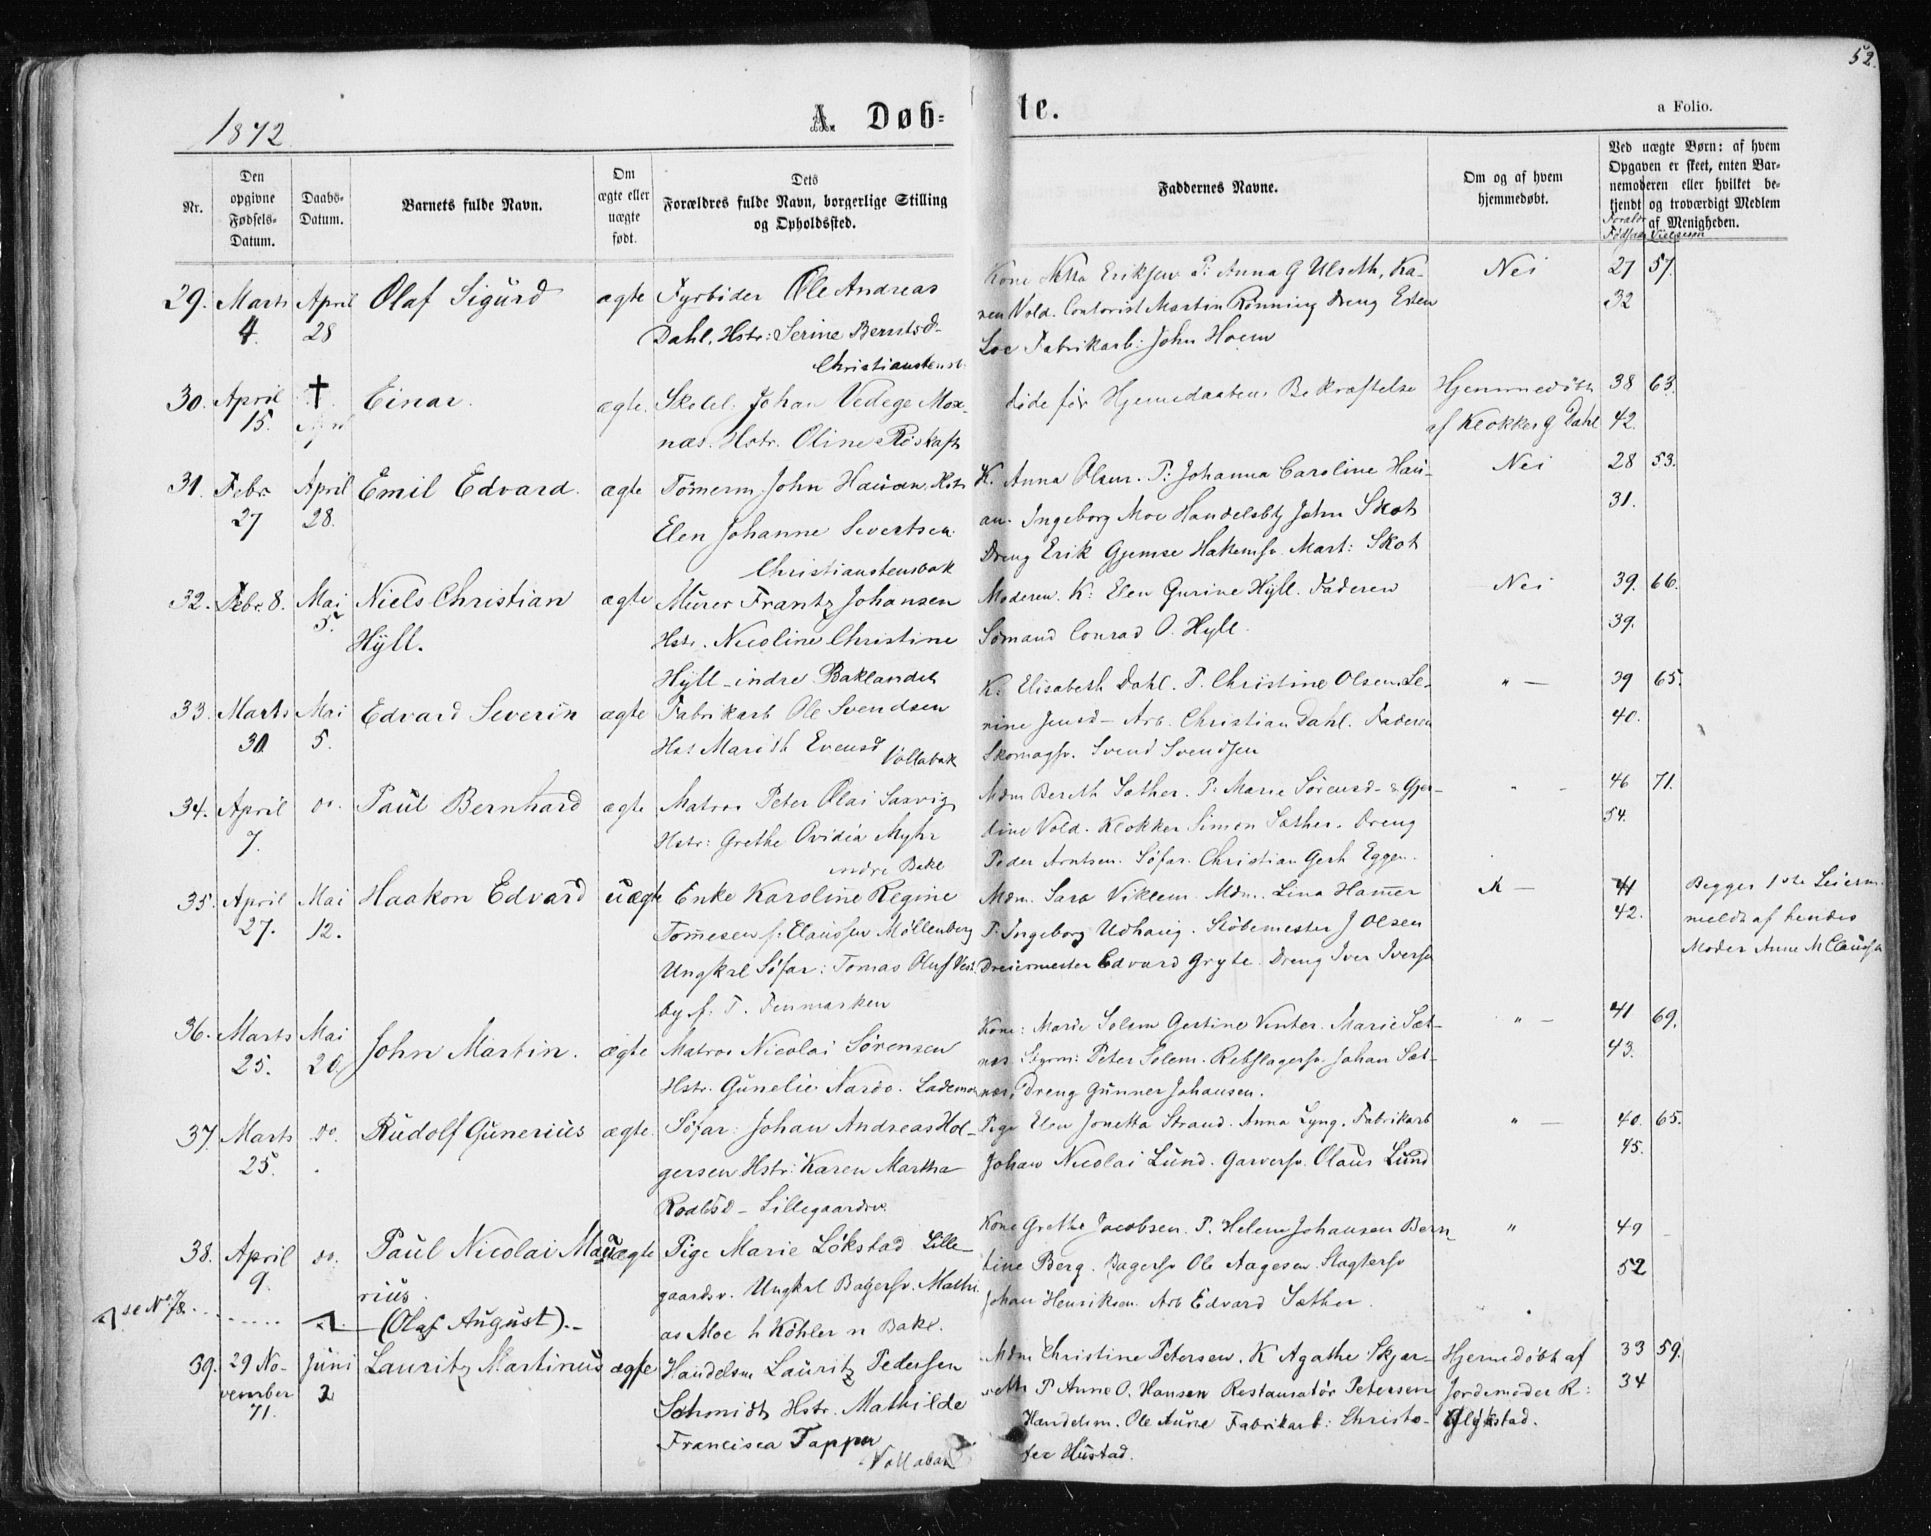 52.
1872
A. Døb-
te.
a Folio.
Nr.
Den opgivne Fødsels-Datum.
Daabs-Datum.
Barnets fulde Navn.
Om ægte eller uægte født.
Dets Forældres fulde Navn, borgerlige Stilling og Opholdssted.
Faddernes Navne.
Om og af hvem hjemmedøbt.
Ved uægte Børn: af hvem Opgaven er skeet, enten Barnemoderen eller hvilket bekjendt og troværdigt Medlem af Menigheden.
29. Marts 4. April 28 Olaf Sigurd ægte Fyrbøder Ole Andreas
Dahl, Hstr: Serine Berntsd-
Kone Erikson P: Anna G Ulseth, Ka-
ren Vold. Contorist Martin Rønning Dreng Esten
Loe Fabrikarb: John Hoem
Nei 27 57.
32
30. April 15. † Einar. ægte. Skolel. Johan Vedege Mox-
næs. Hstr. Oline Røskaft
døde før Hjemmedaabens Bekræftelse
Hjemmedøbt
af Klokker G Dahl
38 63.
42.
31. Febr 27 April 28. Emil Edvard. ægte Tømerm. John Hauan. Hstr
Elen Johanne Sivertsen.
Christianstensbak
K. Anna Olsen. P: Johanna Caroline Hau-
an. Ingeborg Moe Handelsbtj John Skot
Dreng Erik Gjemse Mart: Skot
Nei 28 53.
31.
32. Febr. 8. Mai 5. Niels Christian
Hÿll.
ægte Murer Frantz Johansen
Hstr. Nicoline Christine
Hÿll - indre Baklandet
Moderen. K: Elen Gurine Hÿll. Faderen
Sømand Conrad O. Hyll.
Nei 39. 66.
39.
33. Marts 30 Mai 5. Edvard Severin ægte Fabrikarb Ole Svendsen
Hst Marith Evensd Vollabak
K: Elisabeth Dahl. P. Christine Olsen Se-
rine Jensd - Arb. Christian Dahl. Faderen
Skomagsv. Svend Svendsen
" - 39 65.
40.
34. April 7. do. Paul Bernhard ægte Matros Peter Olai Sasvig
Hstr: Grethe Ovidia Myhr
indre Bakl
Mdm Bereth Sæther. P: Marie Sørensd - & Gjer-
dine Vold. Klokker Simon Sæther. Dreng
Peder Arntsen. Søfar. Christian Gerh Eggen.
46 71.
54.
35. April 27. Mai 12. Haakon Edvard uægte Enke Karoline Regine
Tomesen f. Claussen Møllenberg
Ungkrl Søfar: Tomas Oluf Vest
by f. T. Finmarken
Mdm. Sara Viklem. Mdm. Lina Hamer
P. Ingeborg Udhaug. Støbemester J Olsen
Dreiermester Edvard Gryte. Dreng Iver Iversen
41
42.
Begges 1ste Leierm.
meldt af hendes
Moder Anne M Claussen
36. Marts 25. Mai 20. John Martin. ægte Matros Nicolai Sørensen
Hstr. Gunelie Nardo. Lademoe
Kone: Marie Solem Gertine Vinter. Marie Sæt-
næs. Styrm: Peter Solem. Rebslagersv. Johan Sæt-
næs, Dreng Gunner Johansen.
" - 41 69.
43.
37. Marts 25. do. Rudolf Gunerius ægte. Søfar: Johan Andreas Hol-
gersen Hstr: Karen Martha
- Lillegaardsv.
Pige Elen Jonetta Strand. Anna Lyng. Fabrikarb
Johan Nicolai Lund. Garversv. Olaus Lund
" - 40. 65.
45.
38. April 9. do. Paul Nicolai Mau-
rius.
(Olaf August).-
uægte Pige Marie Løkstad Lille-
gaardsv. Ungkrl Bagersv. Mathi
as Moe h Köhler n Bakl.
Kone Grethe Jacobsen. P. Helene Johansen Bern-
tine Berg. Bagersv Ole Aagesen. Slagtersv
Johan Henriksen. Arb Edvard Sæther.
" 49 -
52
se No 78.
39. 29 No-
vember
71.
Juni 2 Lauritz Martinus ægte Handelsm Lauritz Pedersen
Schmidt Hstr. Mathilde
Francisca Tapper
Vollabak
Mdm Christine Petersen. K Agathe Skjær-
veth P Anne O. Hansen Restauratør Petersen
Handelsm. Ole Aune Fabrikarb: Christo-
fer Hustad.
Hjemedøbt af
Jordemoder R:
Glykstad.
33 59.
34